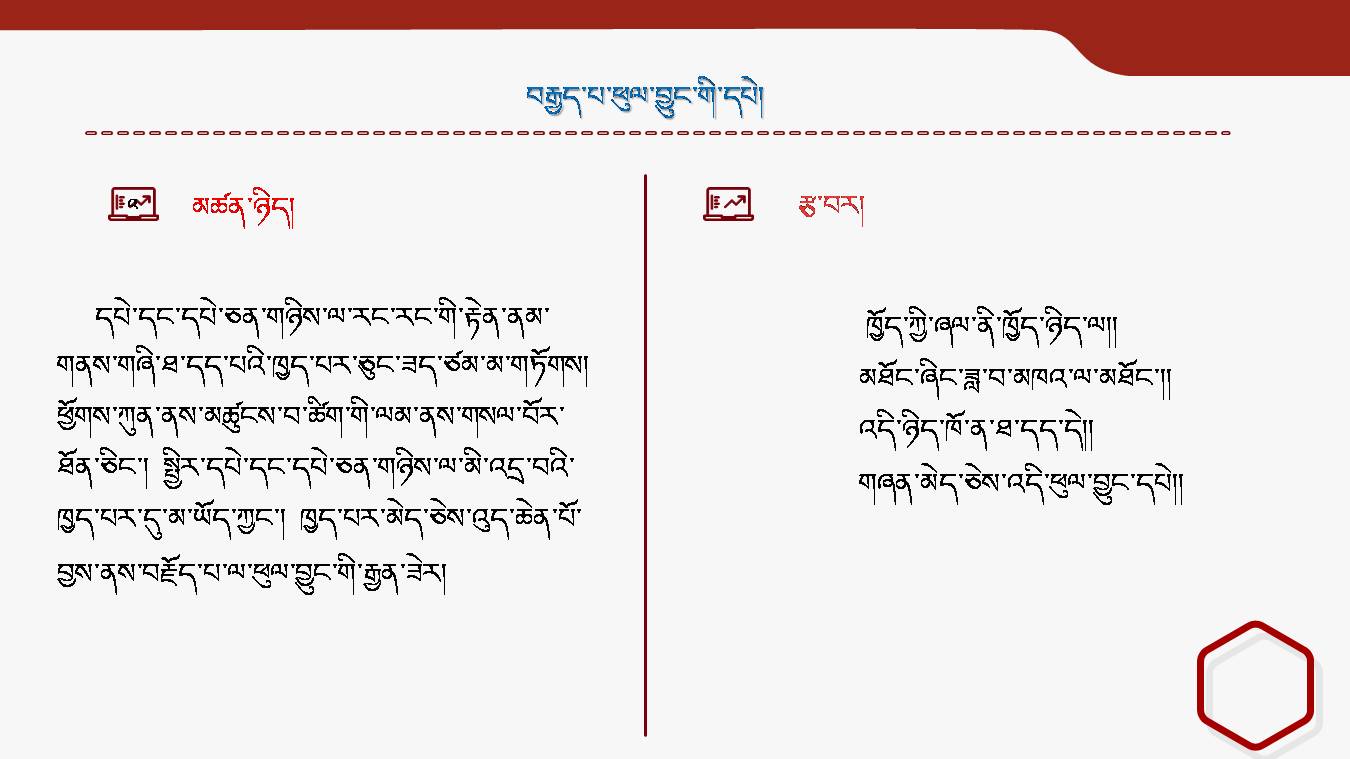 བརྒྱད་པ་ཕུལ་བྱུང་གི་དཔེ།
མཚན་ཉིད།
དཔེ་དང་དཔེ་ཅན་གཉིས་ལ་རང་རང་གི་རྟེན་ནམ་
གནས་གཞི་ཐ་དད་པའི་ཁྱད་པར་ཅུང་ཟད་ཙམ་མ་གཏོགས།
ཕྱོགས་ཀུན་ནས་མཚུངས་བ་ཚིག་གི་ལམ་ནས་གསལ་བོར་
ཐོན་ཅིང་། སྤྱིར་དཔེ་དང་དཔེ་ཅན་གཉིས་ལ་མི་འདྲ་བའི་
ཁྱད་པར་དུ་མ་ཡོད་ཀྱང་། ཁྱད་པར་མེད་ཅེས་འུད་ཆེན་པོ་
བྱས་ནས་བརྗོད་པ་ལ་ཕུལ་བྱུང་གི་རྒྱན་ཟེར།
རྩ་བར།
ཁྱོད་ཀྱི་ཞལ་ནི་ཁྱོད་ཉིད་ལ།།
མཐོང་ཞིང་ཟླ་བ་མཁའ་ལ་མཐོང་།།
འདི་ཉིད་ཁོ་ན་ཐ་དད་དེ།།
གཞན་མེད་ཅེས་འདི་ཕུལ་བྱུང་དཔེ།།